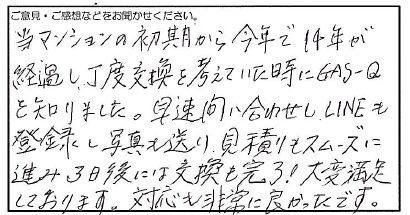 ご意見・ご感想などをお聞かせください。
当マンションの初期から今年で14年が
経過し、丁度交換を考えていた時にGAS-Q
を知りました。早速問い合わせし、LINEも
登録し写真も送り、見積りもスムーズに
進み3日後には交換も完了！大変満足
しております。対応も非常に良かったです。